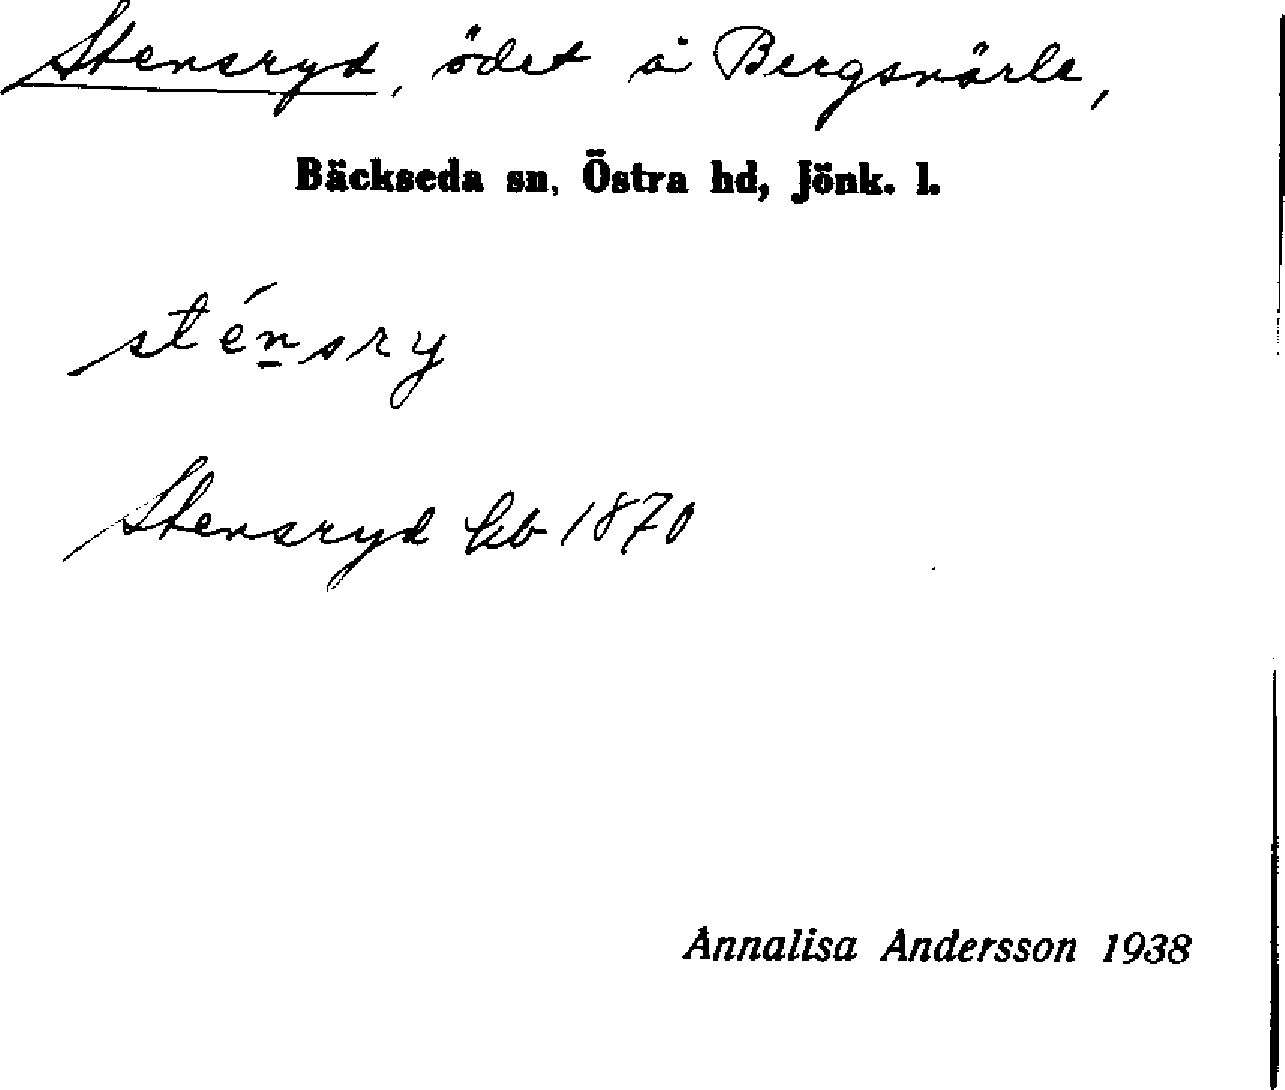 Stensryd, ödet å Bergsnärle,
Bäckseda sn, Östra hd, Jönk. l.
sténsry
Stensryd kb 1870
Annalisa Andersson 1938